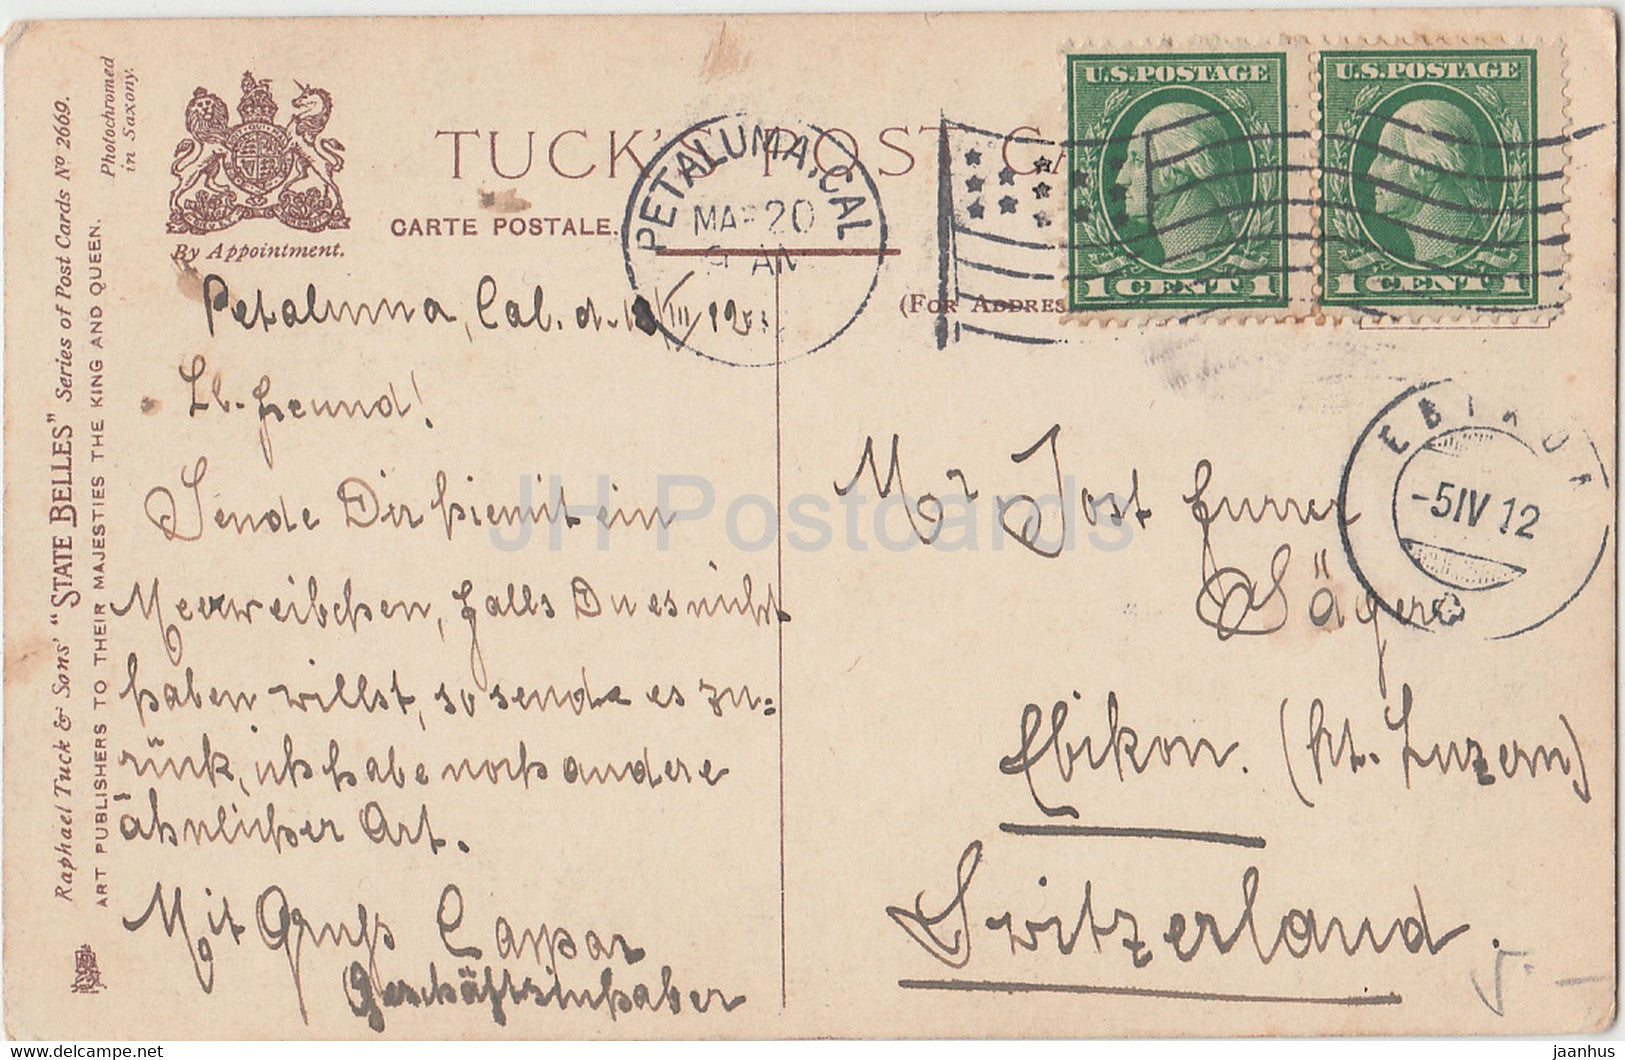 Raphael Tuck & Sons' "STATE BELLES" Series of Post Cards Nº 2669.
ART PUBLISHERS TO THEIR MAJESTIES THE KING AND QUEEN.
Photochromed
in Saxony.
By Appointment.
TUCK'S POST CA
CARTE POSTALE.
(FOR ADDRES
PETALUMA, CAL
MAR 20
AM
U.S.POSTAGE
1 CENT 1
U.S.POSTAGE
1 CENT 1
EBIKON
-5IV 12
Petaluma, Cal. d. III
Lb. Freund!
Sende Dir hiemit ein
Meerweibchen, falls Du es nicht
haben willst, so sende es zu=
rück, ich habe noch andere
ähnlicher Art.
Mit Gruß Caspar
Geschäftsinhaber
Mr Jost Furrer
Sägere
Ebikon. (Kt. Luzern)
Switzerland.
JH Postcards
delcampe.net
jaanhus